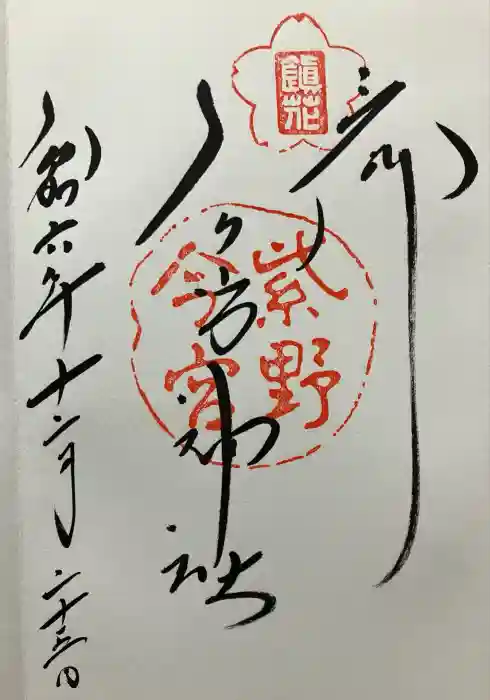 鎮花
奉拝
紫野
今宮
今宮神社
令和六年十二月二十五日